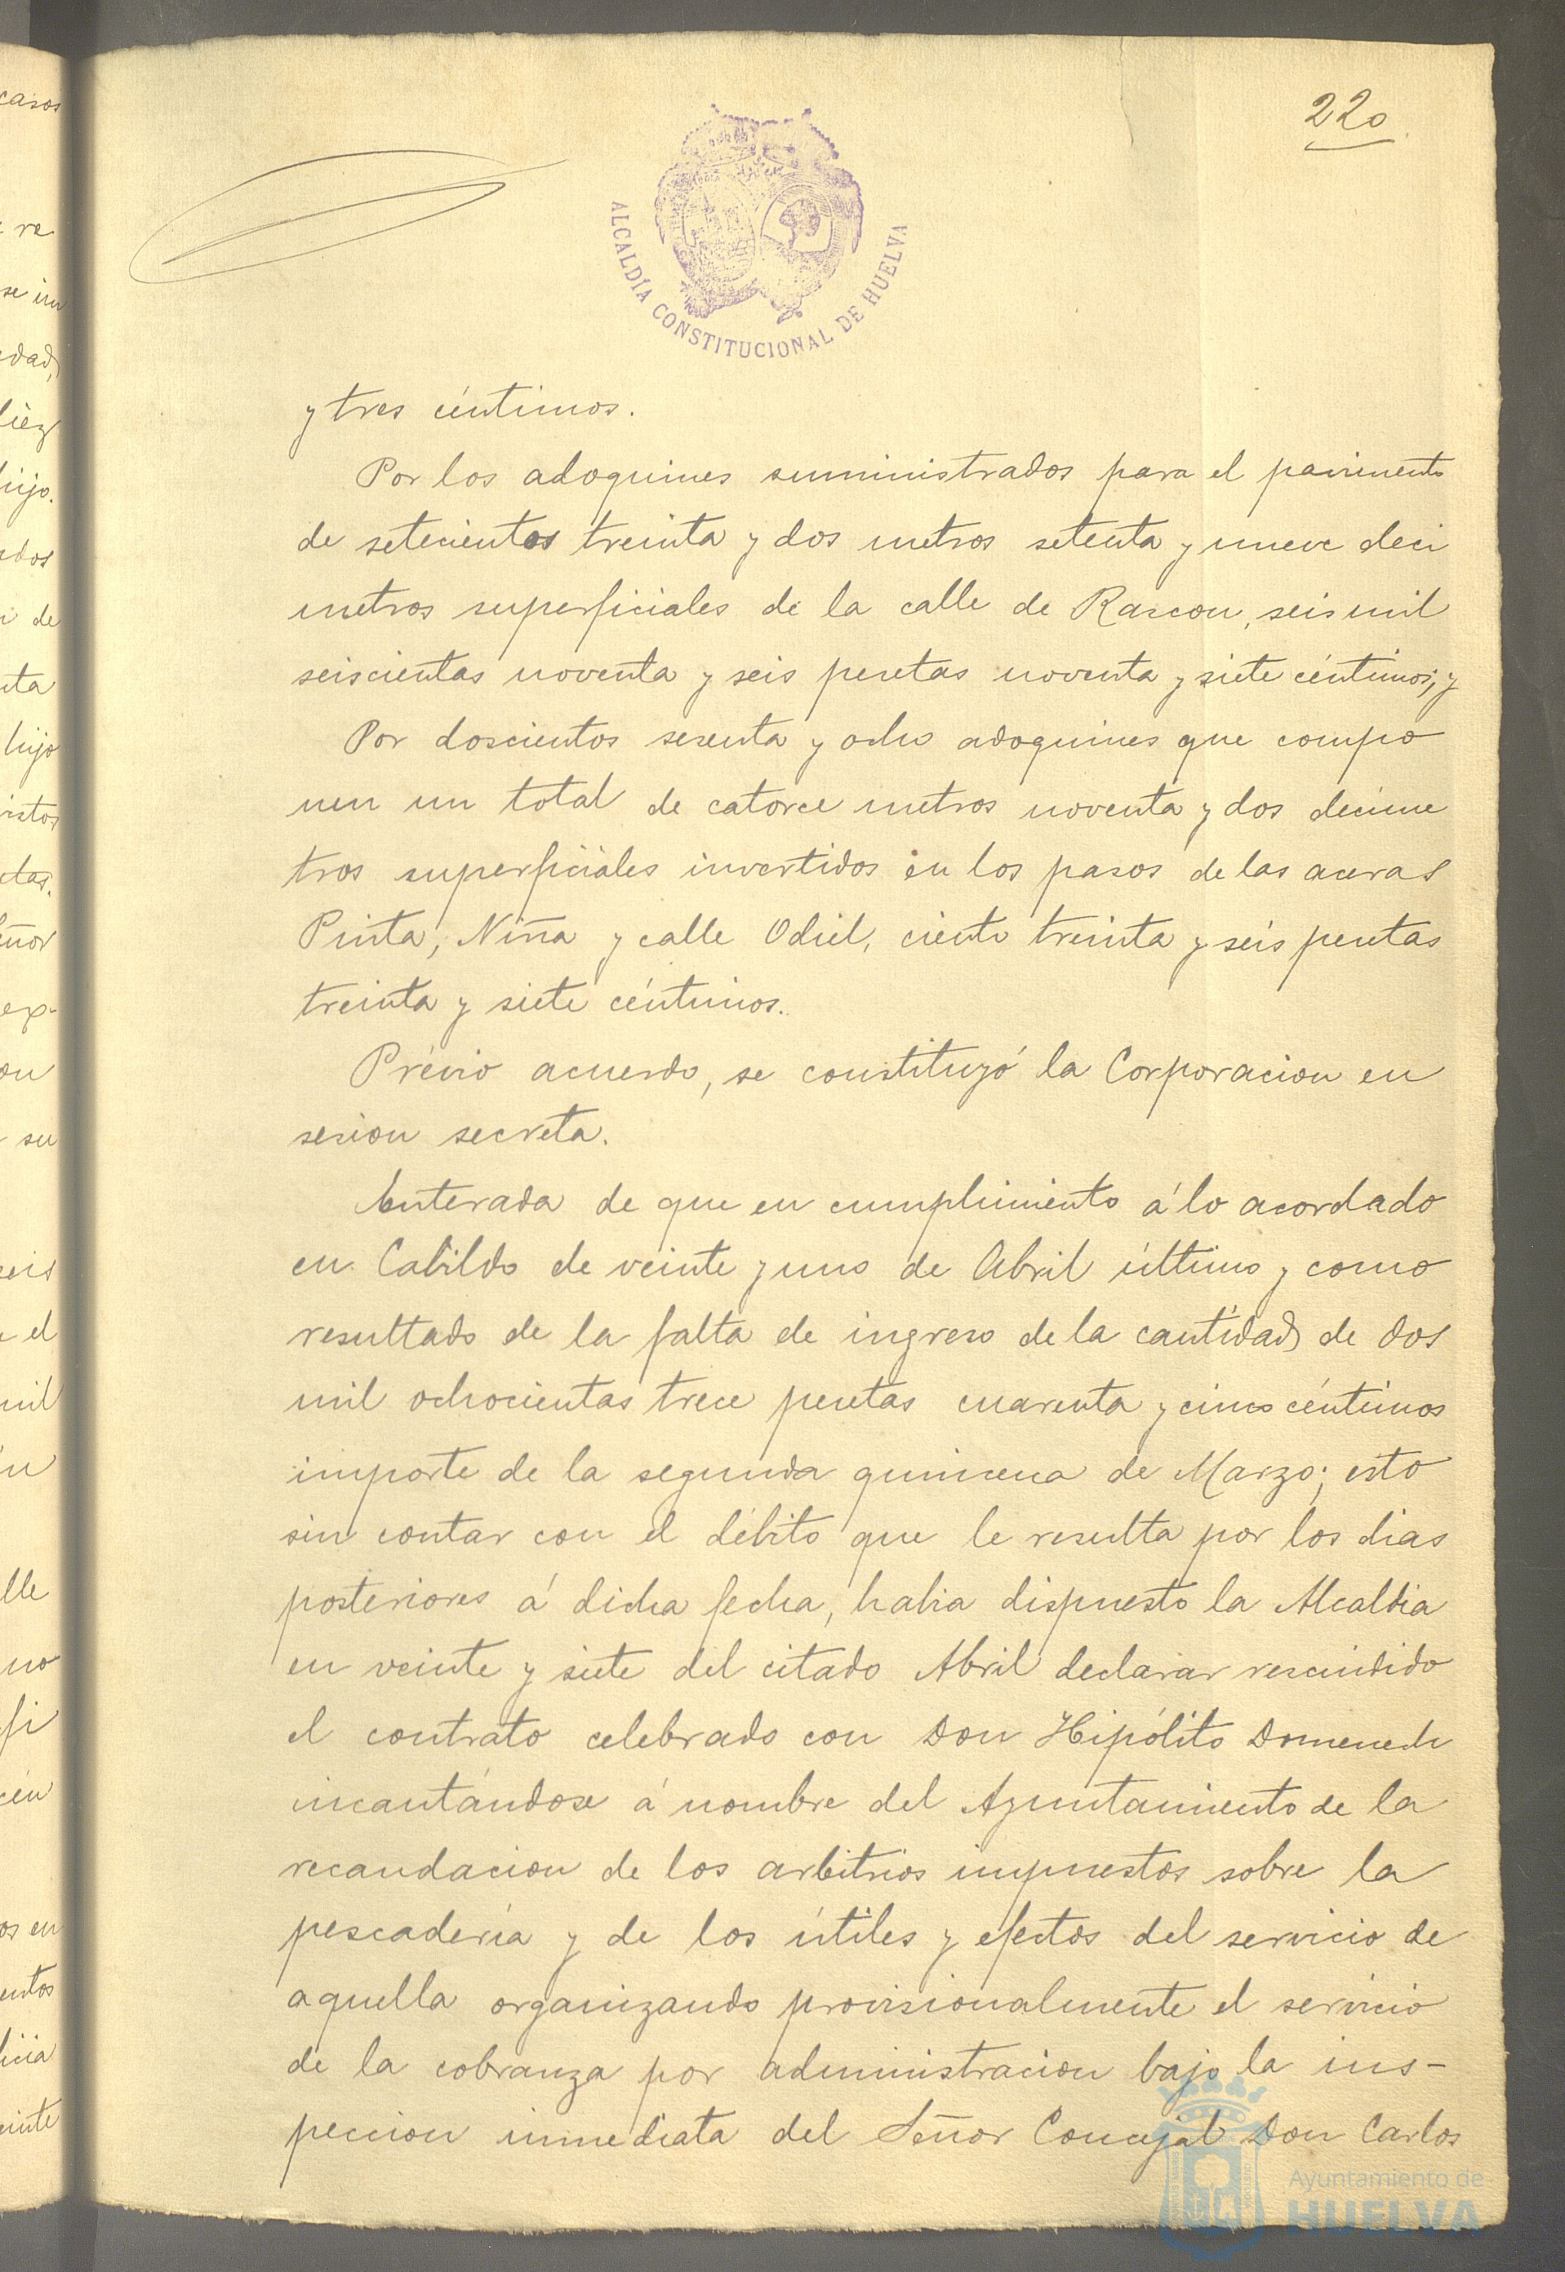 220
ALCALDÍA CONSTITUCIONAL DE HUELVA
y tres céntimos.
Por los adoquines suministrados para el pavimento
de setecientos treinta y dos metros setenta y nueve deci
metros superficiales de la calle de Rascon, seis mil
seiscientas noventa y seis pesetas noventa y siete céntimos; y
Por doscientos sesenta y ocho adoquines que compo
nen un total de catorce metros noventa y dos decime
tros superficiales invertidos en los pasos de las aceras
Pinta, Niña y calle Odiel, ciento treinta y seis pesetas
treinta y siete céntimos.
Prévio acuerdo, se constituyó la Corporacion en
sesion secreta.
Enterada de que en cumplimiento á lo acordado
en Cabildo de veinte y uno de Abril último y como
resultado de la falta de ingreso de la cantidad de dos
mil ochocientas trece pesetas cuarenta y cinco céntimos
importe de la segunda quincena de Marzo; esto
sin contar con el débito que le resulta por los dias
posteriores á dicha fecha, habia dispuesto la Alcaldia
en veinte y siete del citado Abril declarar rescindido
el contrato celebrado con Don Hipólito Domenech
incantándose á nombre del Ayuntamiento de la
recaudacion de los arbitrios impuestos sobre la
pescadería y de los útiles y efectos del servicio de
aquella organizando provisionalmente el servicio
de la cobranza por administracion bajo la ins-
peccion inmediata del Señor Concejal Don Carlos
Ayuntamiento de
HUELVA
casos
re
se im
edad,
diez
hijo.
ados
de
nta
hijo
istos
etas.
eñor
ex-
on
su
seis
el
mil
lle
no
fi
cen
os en
entos
licia
einte